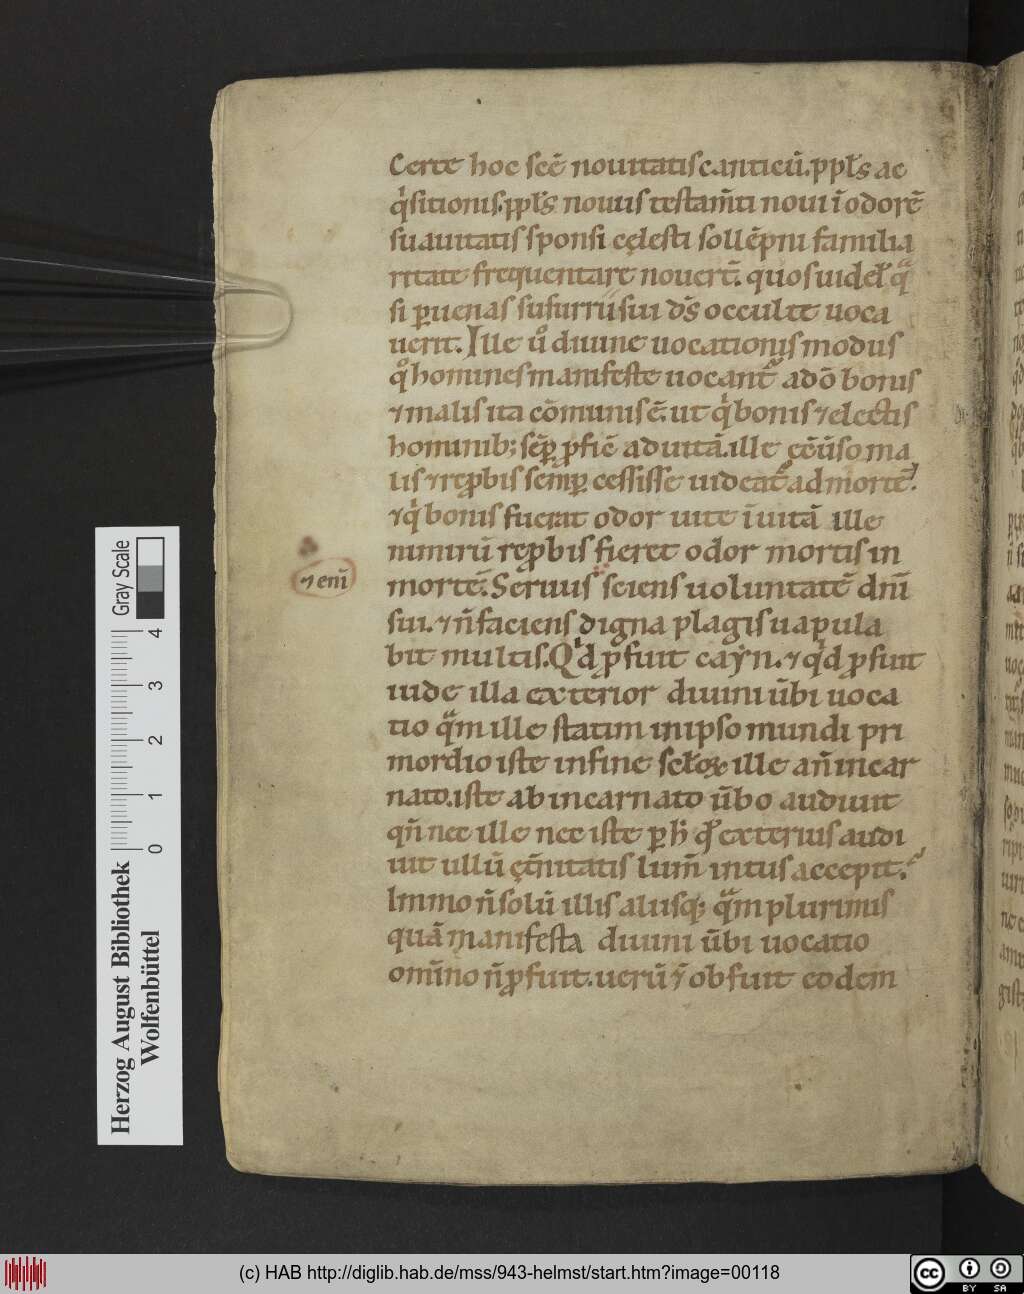 Certe hoc scē nouitatis canticū. ppl's ac
q'sitionis. ppl's nouus testam̄ti noui ī odorē
suauitatis sponsi cęlesti sollēpni familia
ritate frequentare nouer̄t. quos uidel' q
si p uenas susurrii sui ds̄ occulte uoca
uerit. Ille ůo diuine uocationis modus
qo homines manifeste uocant̉ ad dō bonis
⁊ malis ita cōmunis ē. ut q' bonis ⁊ electis
hominib; sēp pficē ad uitā. ille
lis ⁊ repbis semp cessisse uideat̉ ad mortē.
⁊ q' bonis fuerat odor uite ī uitā ille
nimirū repbis fieret odor mortis in
⁊ enī
mortē. Seruus sciens uoluntatē dn̄i
sui. ⁊ n̄ faciens digna plagis uapula
bit multis. Qd' pfuit cayn. ⁊ qd' pfuit
iude illa exterior diuini ūbi uoca
tio qm ille statim in ipso mundi pri
mordio iste in fine scl'oꝝ ille an̄ incar
nato. iste ab incarnato ūbo audiuit
qn̄ nec ille nec iste p h' qd' exterius audi
uit ullū ęt̄nitatis lum̄ intus accepit.
Immo n̄ solū illis aliisq; qm plurimis
quā manifesta diuini ūbi uocatio
om̄ino n̄ pfuit. uerū ⁊ obfuit eodem
Gray Scale
0 1 2 3 4
Herzog August Bibliothek
Wolfenbüttel
(c) HAB http://diglib.hab.de/mss/943-helmst/start.htm?image=00118
cc BY SA